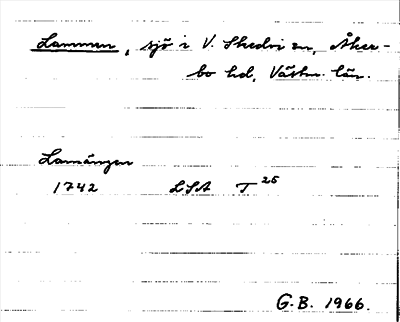 Lammen, sjö i V. Skedvi sn, Åker-
bo hd, Västm. län.
Lamängen
1742 LSA T 25
G.B. 1966.